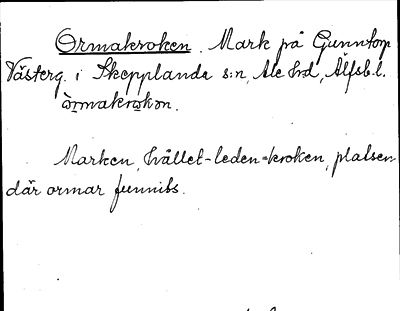 Ormakroken. Mark på Gunntorp
Västerg. i Skepplanda s:n, Ale hd, Älfsb. l.
ὼrmakrωkɷn.
Marken, hållet-leden-kroken, platsen
där ormar funnits.